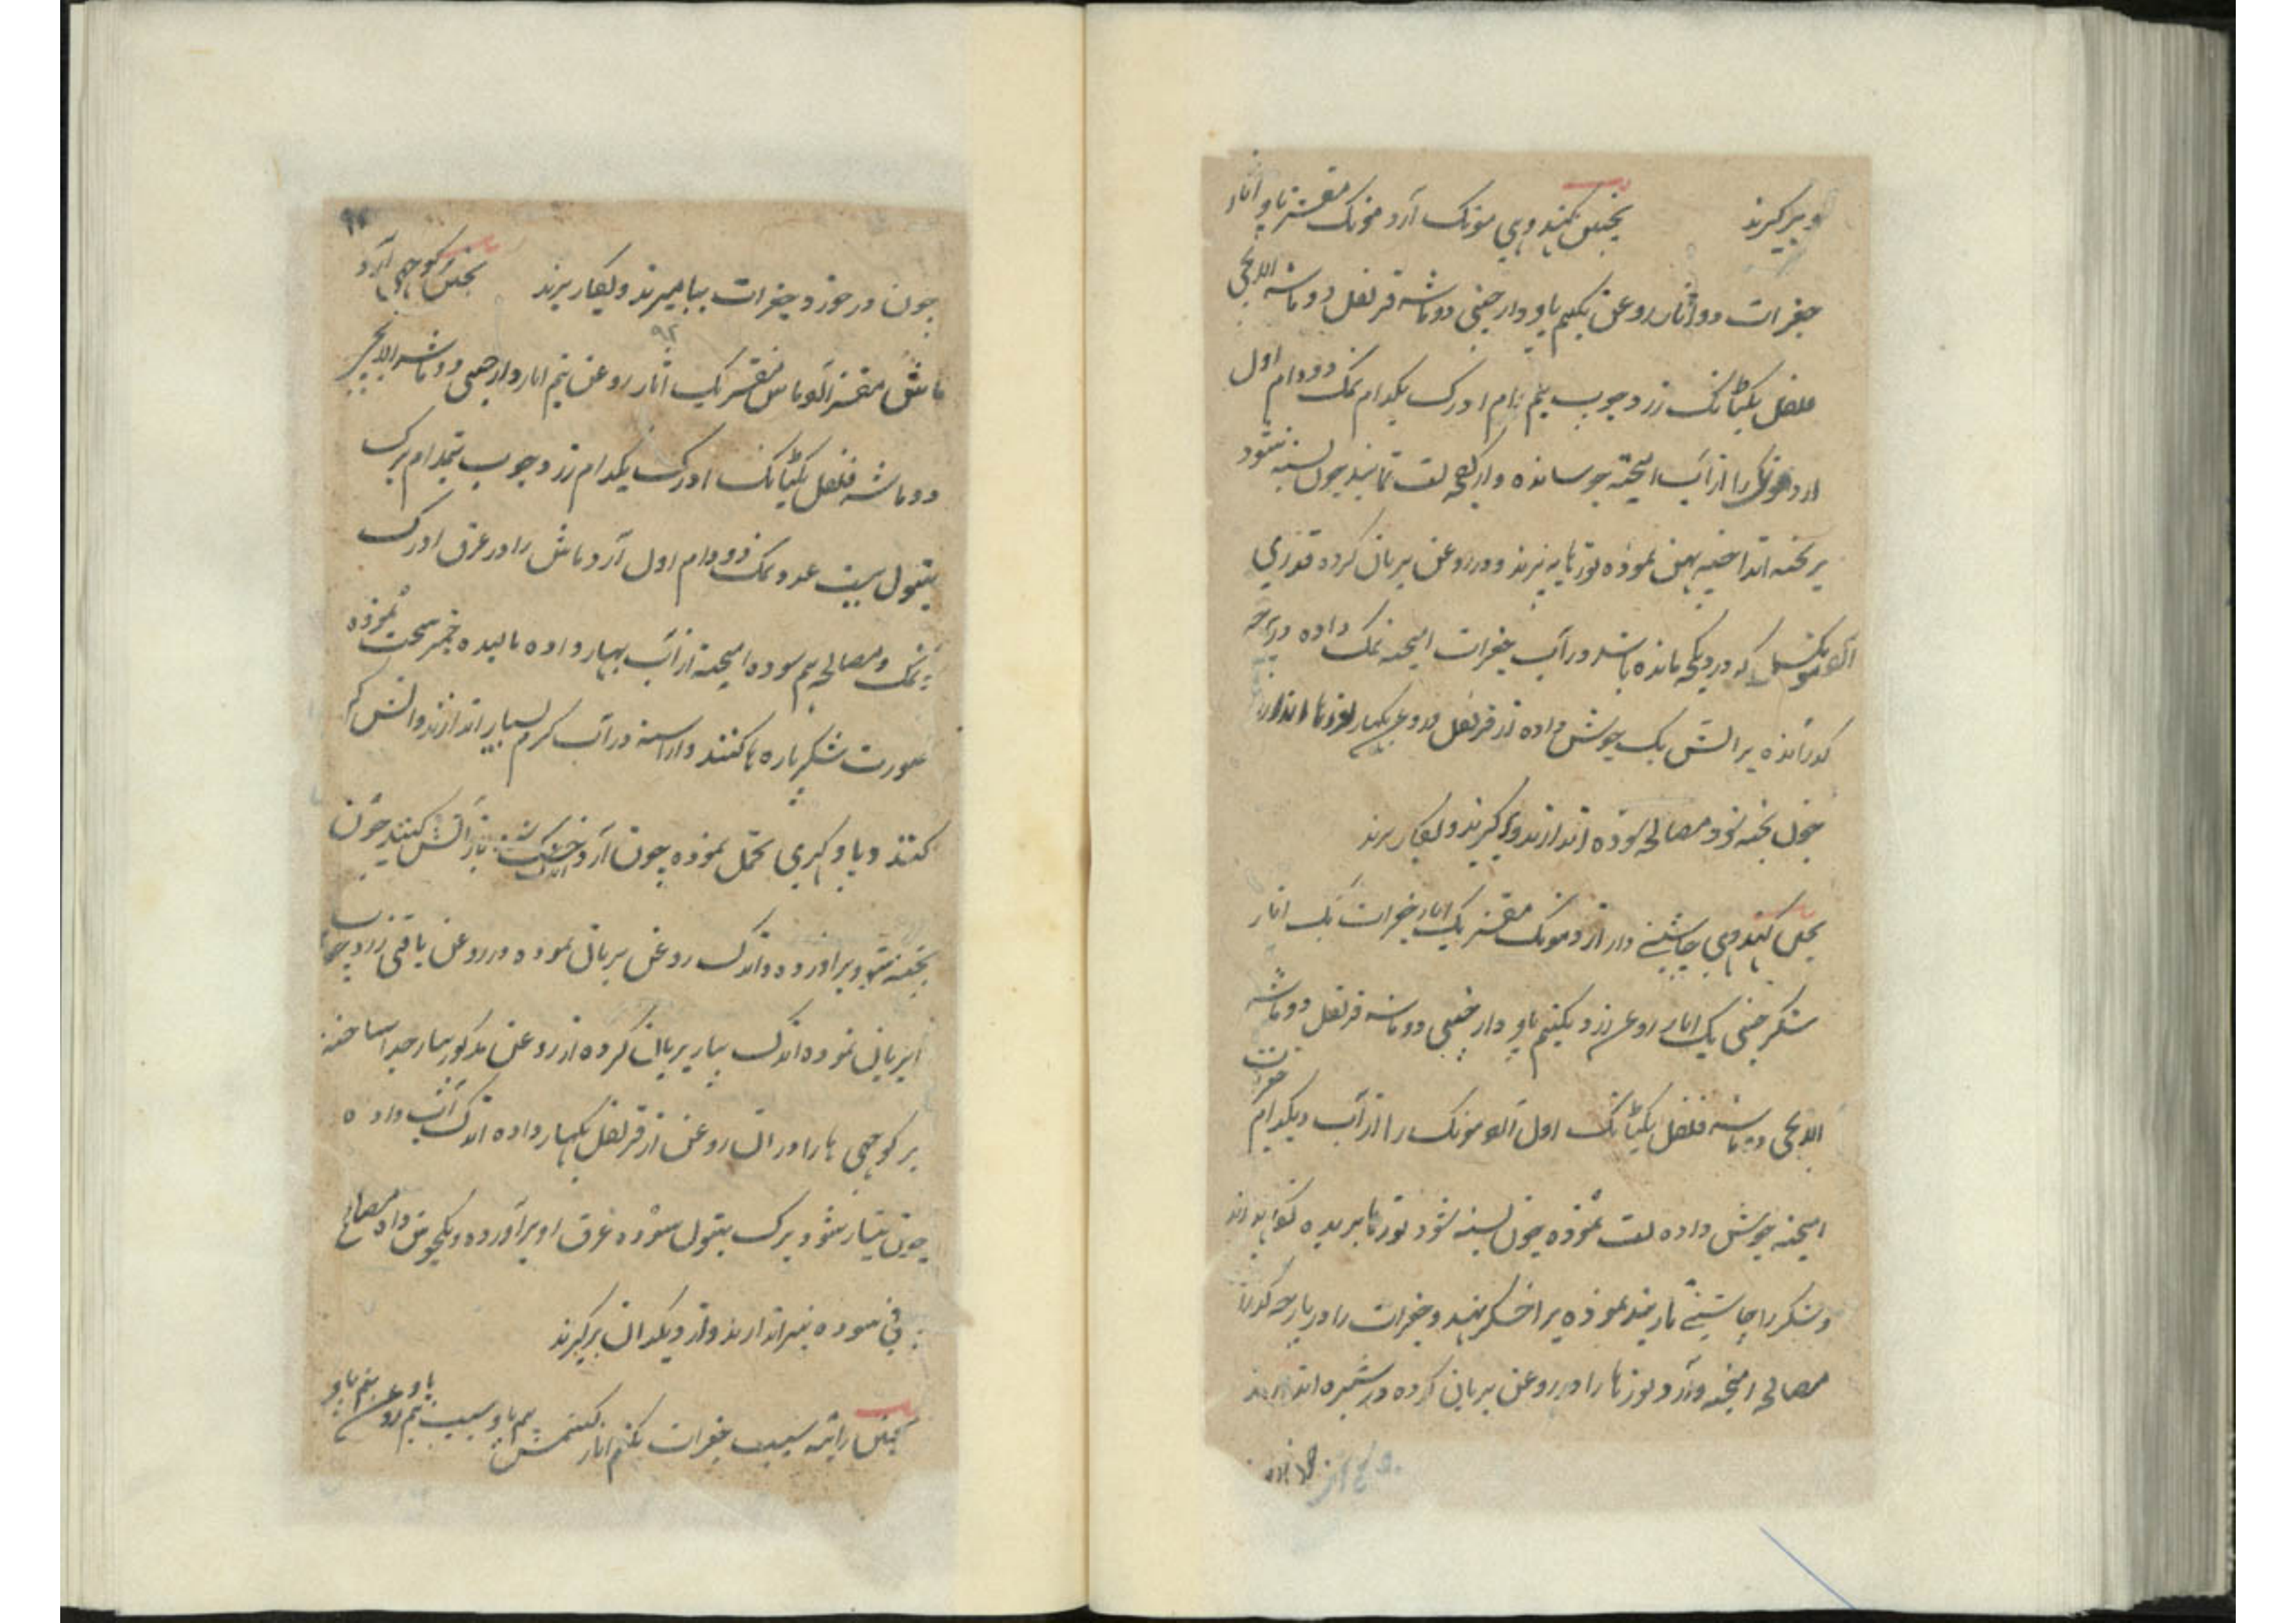 و برگیرند پختن کهندوی مونک آرد مونک مقشر پاو آثار
جغرات دو آثار روغن یکنیم پاو دارچینی دو ماشه قرنفل دو ماشه الایچی
فلفل یکتانک زردچوب نیم دام ادرک یکدام نمک دو دام اول
آرد مونک را از آب آمیخته جوشانده و از کفچه لت نمایند چون بسته شود
بر تخته انداخته پهن نموده لوزها ببرند و در روغن بریان کرده قدری
که در دیکچه مانده باشد در آب جغرات آمیخته نمک داده در پارچه
گذرانیده بر آتش یک جوش داده از قرنفل و روغن بگهار لوزها اندازند
چون پخته شود مصالح سوده اندازند و برگیرند و بکار برند
پختن کهندوی چاشنی دار آرد مونک مقشر یک آثار جغرات یک آثار
شکر چینی یک آثار روغن زرد یکنیم پاو دارچینی دو ماشه قرنفل دو ماشه
الایچی دو ماشه فلفل یکتانک اول آرد مونک را از آب و یکدام جغرات
آمیخته جوش داده لت نموده چون بسته شود لوزها بریده
و شکر را چاشنی تاربند نموده بر اخگر نهند و جغرات را در پارچه گذرانیده
مصالح آمیخته و آرد لوزها را در روغن بریان کرده در شیره اندازند
چون در خورد جغرات بیامیزند و بکار برند پختن رکوچهی آرد
ماش مقشر آرد ماش مقشر یک آثار روغن نیم آثار دارچینی دو ماشه الایچی
دو ماشه فلفل یکتانک ادرک یکدام زردچوب نیمدام برگ
تنبول بیست عدد نمک دو دام اول آرد ماش را در عرق ادرک
نمک و مصالح هم سوده آمیخته از آب بهار داده مالیده خمیر سخت نموده
صورت شکرپاره ها کنند و آهسته در آب گرم بسیار اندازند و آتش کم
کنند و پاو گهری تحمل نموده چون آرد خشک باز آتش کنند چون
پخته شود برآورده و اندک روغن بریان نموده در روغن باقی زردچوب
بریان نموده اندک پیاز بریان کرده از روغن مذکور پیاز جدا ساخته
رکوچهی ها را در آن روغن از قرنفل بگهار داده اندک آتش داده
چون تیار شود برگ تنبول سوده عرق او برآورده و یکجوش داده مصالح
باقی سوده نیز اندازند و از دیگدان برگیرند
پختن رایته سیب جغرات یکنیم آثار کشمش نیم پاو سیب نیم پاو روغن نیم پاو